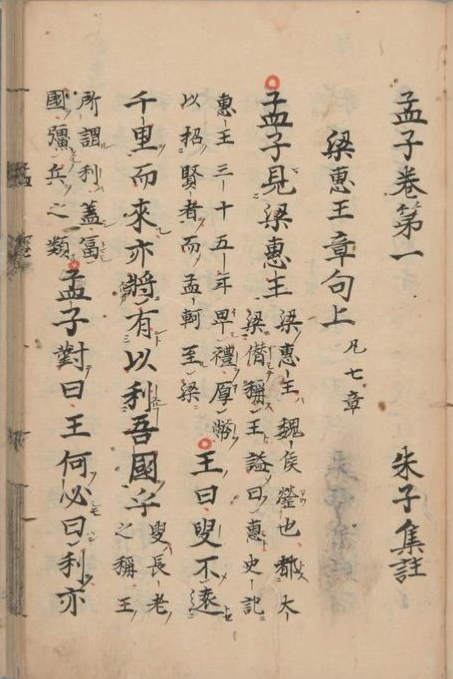 孟子卷第一 朱子集註
梁惠王章句上 凡七章
孟子見梁惠王
梁惠王魏侯罃也都大
梁僭稱王謚曰惠史記
惠王三十五年卑禮厚幣
以招賢者而孟軻至梁
王曰叟不遠
千里而來亦將有以利吾國乎
叟長老
之稱王
所謂利蓋富
國彊兵之類
孟子對曰王何必曰利亦